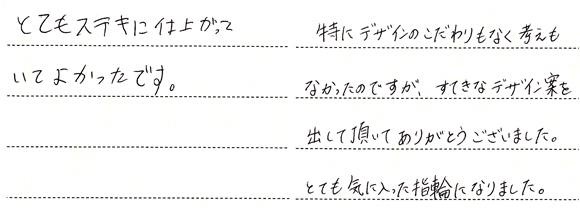 とてもステキに仕上がって
いてよかったです。
特にデザインのこだわりもなく考えも
なかったのですが、すてきなデザイン案を
出して頂いてありがとうございました。
とても気に入った指輪になりました。